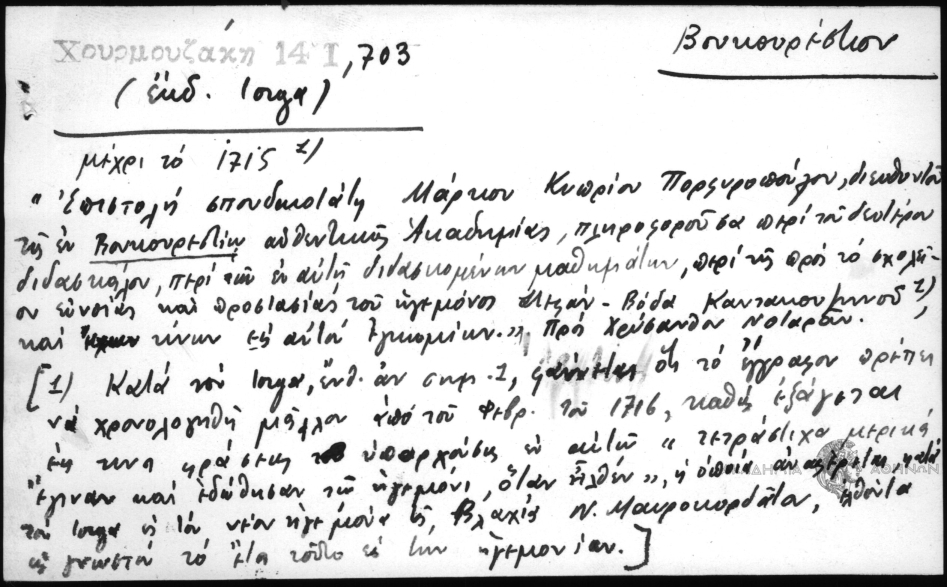 Χουρμουζάκη 14 I, 703
Βουκουρέστιον
(ἔκδ. Iorga)
μέχρι τό 1715 1)
"Ἐπιστολή σπουδαιοτάτη Μάρκου Κυπρίου Πορφυροπούλου, διευθυντοῦ
τῆς ἐν Βουκουρεστίῳ αὐθεντικῆς Ἀκαδημίας, πληροφοροῦσα περί τοῦ δευτέρου
διδασκάλου, περί τῶν ἐν αὐτῇ διδασκομένων μαθημάτων, περί τῆς πρός τό σχολεῖ-
ον εὐνοίας καί προστασίας τοῦ ἡγεμόνος Στεφάν-Βόδα Καντακουζηνοῦ 2)
καί τινων εἰς αὐτόν ἐγκωμίων.". Πρός Χρύσανθον Νοταρᾶν.
[1) Κατά τόν Iorga, ἔνθ. ἀν. σημ. 1, φαίνεται ὅτι τό ἔγγραφον πρέπει
νά χρονολογηθῇ μᾶλλον ἀπό τοῦ Φεβρ. τοῦ 1716, καθώς ἐξάγεται
ἔκ τινος φράσεως ὑπαρχούσης ἐν αὐτῷ "τετράστιχα μερικά
ἔγιναν καί ἐδόθησαν τῷ ἡγεμόνι, ὅταν ἦλθεν", ἡ ὁποία ἀναφέρεται, κατά
τόν Iorga εἰς τόν νέον ἡγεμόνα τῆς Βλαχίας Ν. Μαυροκορδᾶτον, ἐλθόντα
ὡς γνωστόν τό ἔτος τοῦτο εἰς τήν ἡγεμονίαν.]
ΑΚΑΔΗΜΙΑ ΑΘΗΝΩΝ